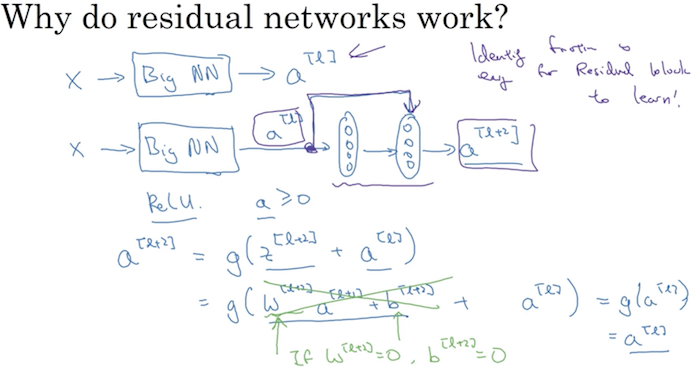 Why do residual networks work?
X → Big NN → a^[l]
Identity function is
easy for Residual block
to learn!
X → Big NN a^[l] → a^[l+2]
ReLU. a ≥ 0
a^[l+2] = g(z^[l+2] + a^[l])
= g(W^[l+2] a^[l+1] + b^[l+2] + a^[l]) = g(a^[l])
= a^[l]
If W^[l+2] = 0, b^[l+2] = 0